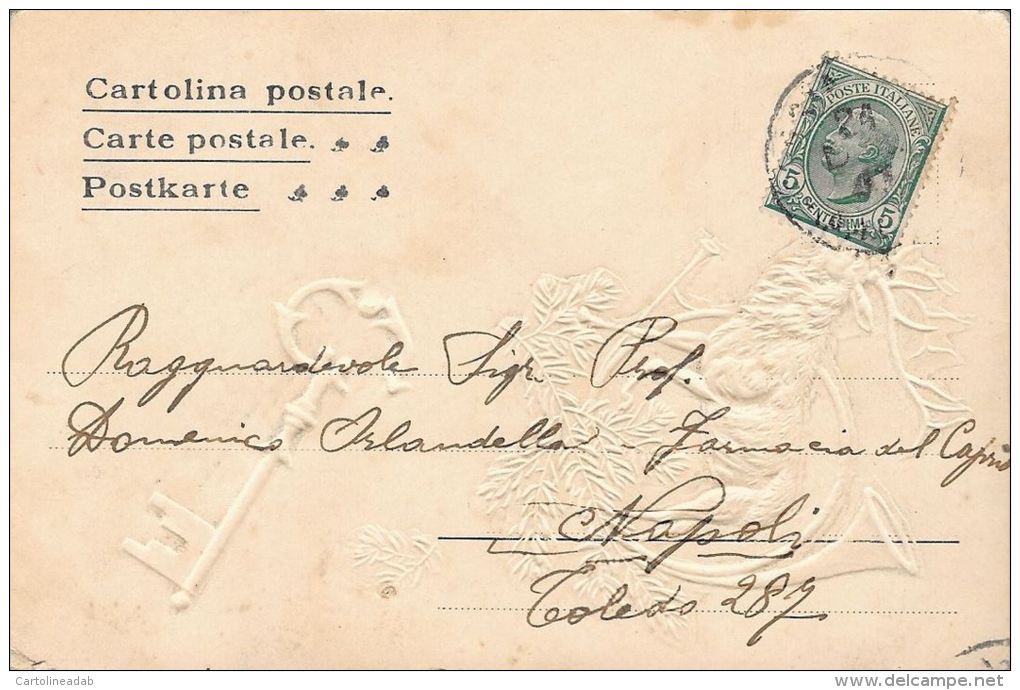 Cartolina postale.
Carte postale.
Postkarte
POSTE ITALIANE
5 CENTESIMI 5
Ragguardevole Sigr. Prof.
Domenico Orlandella - Farmacia del Capri
Napoli
Toledo 287
Cartolineadab
delcampe.net